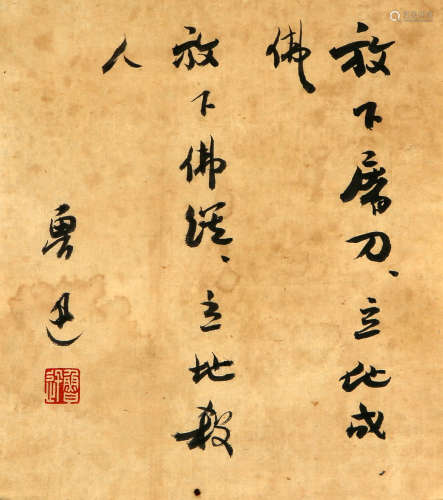 放下屠刀、立地成
佛
放下佛经、立地杀
人
鲁迅
鲁迅